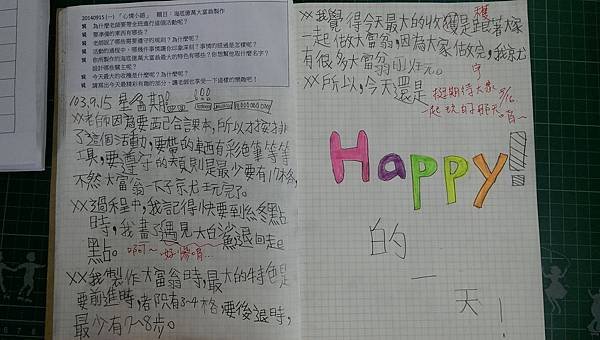 20140915 (一) 「心情小語」 題目:海底億萬大富翁製作
為什麼老師要帶全班進行這個活動呢?
要準備的東西有哪些?
老師說了哪些需要遵守的規則?為什麼呢?
活動的過程中,哪幾件事情讓你印象深刻?事情的經過是怎樣呢?
你所製作的海底億萬大富翁最大的特色有哪些?你想幫他取什麼名字?
設計哪些關主呢?
今天最大的收穫是什麼呢?為什麼呢?
請寫出今天最精彩有趣的部分,讓老師也享受一下這樣的樂趣吧!
103.9.15 星期一
××老師因為要配合課本,所以才安排
了這個活動,要帶的東西有彩色筆等等
工具,要遵守的規則是最少要有17格,
不然大富翁一下子就玩完了。
××過程中,我記得快要到終點
時,我畫了遇見大白鯊魚退回起
點。啊~好慘唷…
××我製作大富翁時,最大的特色是
要前進時,都只有3~4格,要後退時,
最少有7~8步。
××我覺得今天最大的收獲是跟著大家
穫
一起做大富翁,因為大家做完,我就
有很多大富翁可以玩。
××所以,今天還是
挺期待大家
一起玩的那天唷~
9/16
Happy!
的
一
天!